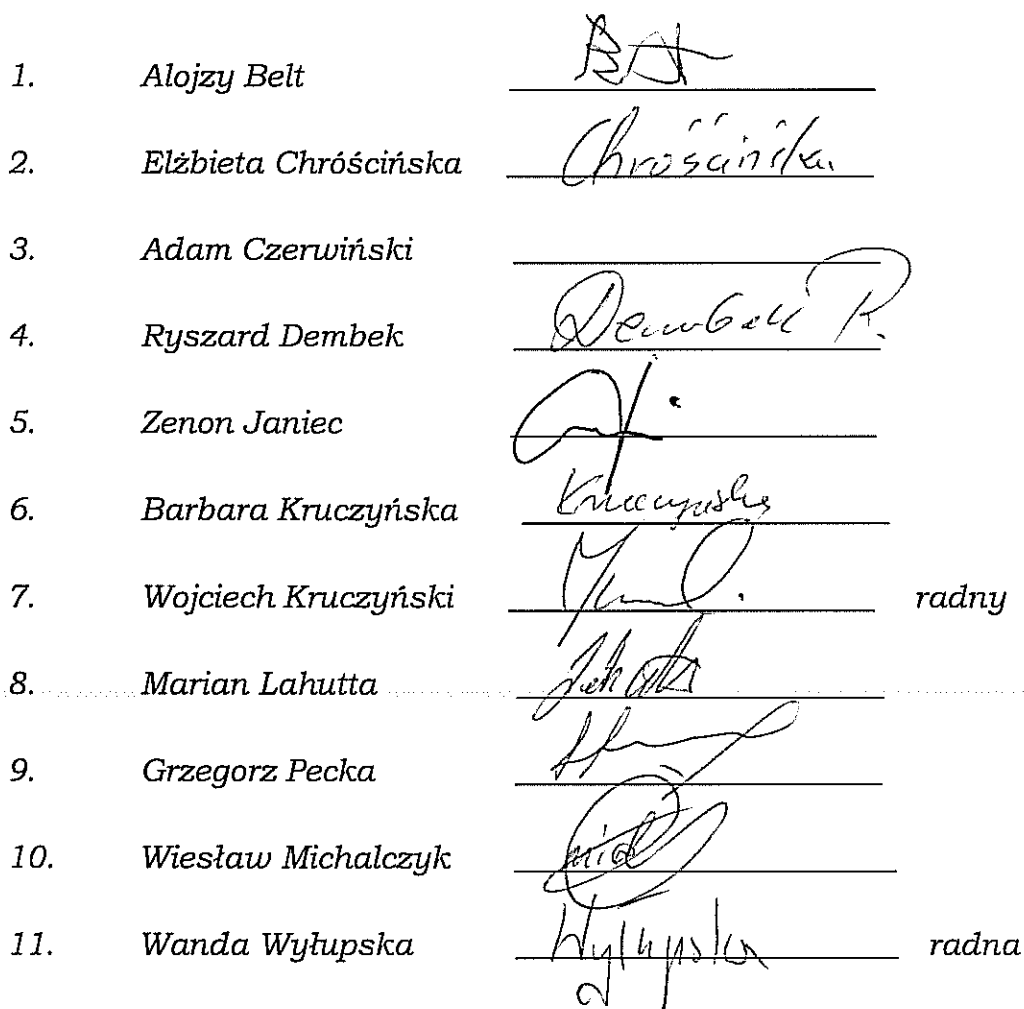 1. Alojzy Belt
2. Elżbieta Chróścińska Chróścińska
3. Adam Czerwiński
4. Ryszard Dembek Dembek R.
5. Zenon Janiec
6. Barbara Kruczyńska Kruczyńska
7. Wojciech Kruczyński radny
8. Marian Lahutta
9. Grzegorz Pecka
10. Wiesław Michalczyk
11. Wanda Wyłupska Wyłupska radna